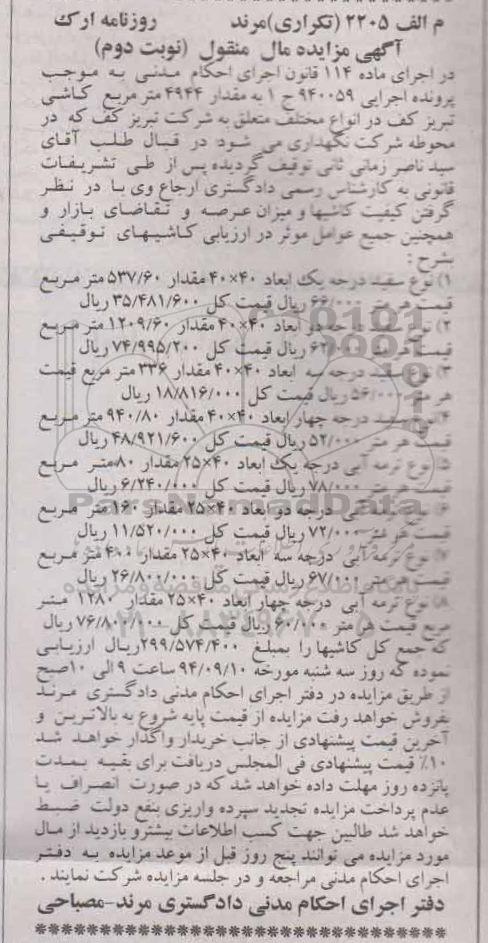 م الف ۲۲۰۵ (تکراری)مرند روزنامه ارک
آگهی مزایده مال منقول (نوبت دوم)
در اجرای ماده ۱۱۴ قانون اجرای احکام مدنی به موجب
پرونده اجرایی ۹۴۰۰۵۹ ج ۱ به مقدار ۴۹۴۴ متر مربع کاشی
تبریز کف در انواع مختلف متعلق به شرکت تبریز کف که در
محوطه شرکت نگهداری می شود در قبال طلب آقای
سید ناصر زمانی ثانی توقیف گردیده پس از طی تشریفات
قانونی به کارشناس رسمی دادگستری ارجاع وی با در نظر
گرفتن کیفیت کاشیها و میزان عرضه و تقاضای بازار و
همچنین جمیع عوامل موثر در ارزیابی کاشیهای توقیفی
بشرح :
۱) نوع سفید درجه یک ابعاد ۴۰×۴۰ مقدار ۵۳۷/۶۰ متر مربع
قیمت هر متر ۶۶/۰۰۰ ریال قیمت کل ۳۵/۴۸۱/۶۰۰ ریال
۲) نوع سفید درجه دو ابعاد ۴۰×۴۰ مقدار ۱۲۰۹/۶۰ متر مربع
قیمت هر متر ریال قیمت کل ۷۴/۹۹۵/۲۰۰ ریال
۳) نوع سفید درجه سه ابعاد ۴۰×۴۰ مقدار ۳۳۶ متر مربع قیمت
هر متر ۵۶/۰۰۰ ریال قیمت کل ۱۸/۸۱۶/۰۰۰ ریال
۴) نوع سفید درجه چهار ابعاد ۴۰×۴۰ مقدار ۹۴۰/۸۰ متر مربع
قیمت هر متر ۵۲/۰۰۰ ریال قیمت کل ۴۸/۹۲۱/۶۰۰ ریال
۵) نوع ترمه آبی درجه یک ابعاد ۴۰×۲۵ مقدار ۸۰ متر مربع
قیمت هر متر ۷۸/۰۰۰ ریال قیمت کل ۶/۲۴۰/۰۰۰ ریال
۶) نوع ترمه آبی درجه دو ابعاد ۴۰×۲۵ مقدار ۱۶۰ متر مربع
قیمت هر متر ۷۲/۰۰۰ ریال قیمت کل ۱۱/۵۲۰/۰۰۰ ریال
۷) نوع ترمه آبی درجه سه ابعاد ۴۰×۲۵ مقدار ۴۰۰ متر مربع
قیمت هر متر ۶۷/۰۰۰ ریال قیمت کل ۲۶/۸۰۰/۰۰۰ ریال
۸) نوع ترمه آبی درجه چهار ابعاد ۴۰×۲۵ مقدار ۱۲۸۰ متر
مربع قیمت هر متر ۶۰/۰۰۰ ریال قیمت کل ۷۶/۸۰۰/۰۰۰ ریال
که جمع کل کاشیها را بمبلغ ۲۹۹/۵۷۴/۴۰۰ریال ارزیابی
نموده که روز سه شنبه مورخه ۹۴/۰۹/۱۰ ساعت ۹ الی ۱۰صبح
از طریق مزایده در دفتر اجرای احکام مدنی دادگستری مرند
بفروش خواهد رفت مزایده از قیمت پایه شروع به بالاترین و
آخرین قیمت پیشنهادی از جانب خریدار واگذار خواهد شد
۱۰٪ قیمت پیشنهادی فی المجلس دریافت برای بقیه بمدت
پانزده روز مهلت داده خواهد شد که در صورت انصراف یا
عدم پرداخت مزایده تجدید سپرده واریزی بنفع دولت ضبط
خواهد شد طالبین جهت کسب اطلاعات بیشترو بازدید از مال
مورد مزایده می توانند پنج روز قبل از موعد مزایده به دفتر
اجرای احکام مدنی مراجعه و در جلسه مزایده شرکت نمایند .
دفتر اجرای احکام مدنی دادگستری مرند-مصباحی
ParsNamadData